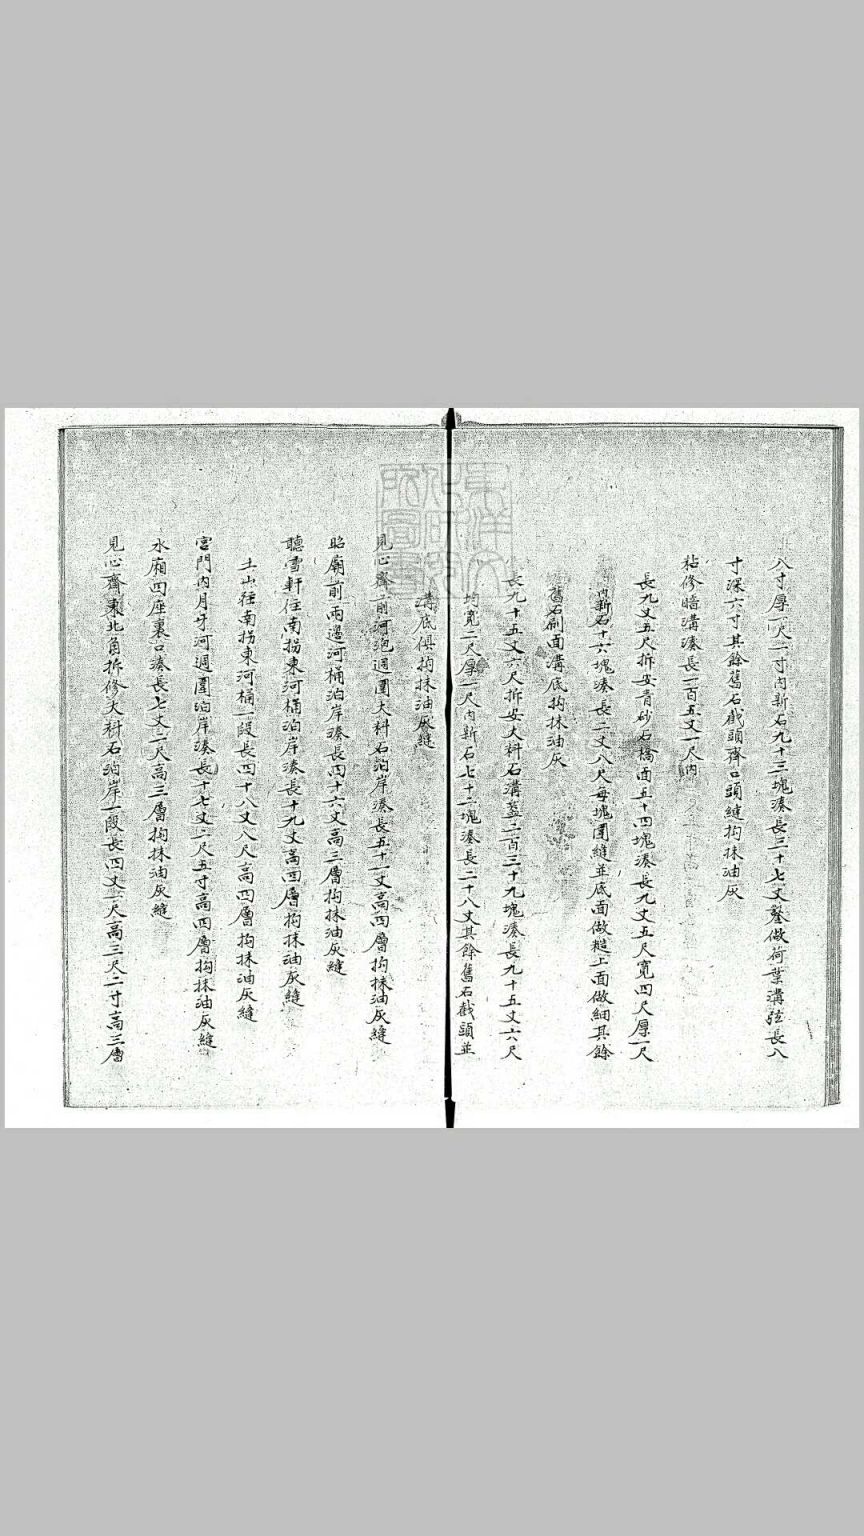 八寸厚一尺一寸內新石九十三塊湊長三十七丈鏨做荷葉溝弦長八
寸深六寸其餘舊石截頭齊口頭縫抅抹油灰
粘修暗溝湊長一百五丈一尺內
長九丈五尺拆安青砂石橋面五十四塊湊長九丈五尺寬四尺厚一尺
內新石十六塊湊長二丈八尺每塊圍縫並底面做糙上面做細其餘
舊石刷面溝底抅抹油灰
長九十五丈六尺拆安大料石溝蓋二百三十九塊湊長九十五丈六尺
均寬二尺厚一尺內新石七十二塊湊長二十八丈其餘舊石截頭並
溝底俱抅抹油灰縫
見心齋前河泡週圍大料石泊岸湊長五十一丈高四層抅抹油灰縫
昭廟前兩邊河桶泊岸湊長四十六丈高三層抅抹油灰縫
聽雪軒往南拐東河桶泊岸湊長十九丈高四層抅抹油灰縫
土山往南拐東河桶一段長四十八丈八尺高四層抅抹油灰縫
宮門內月牙河週圍泊岸湊長十七丈二尺五寸高四層抅抹油灰縫
水廂四座裏口湊長七丈二尺高三層抅抹油灰縫
見心齋東北角拆修大料石泊岸一段長四丈六尺高三尺二寸高三層